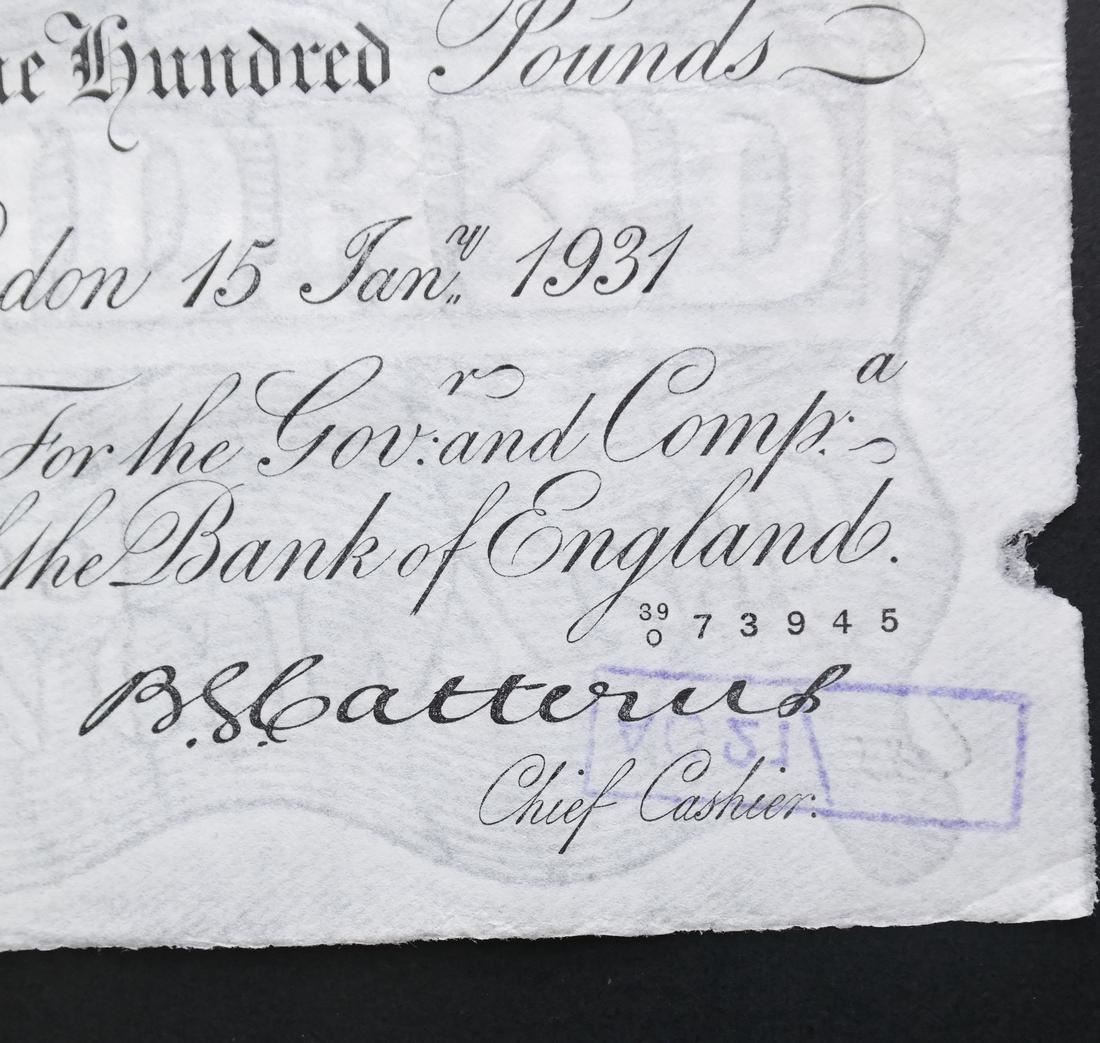 ne Hundred Pounds
don 15 Janʸ 1931
For the Govʳ: and Compᵃ:
the Bank of England.
39/0 73945
B.G. Catterns
Chief Cashier.